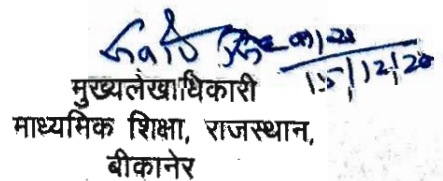 15/12/20
मुख्यलेखाधिकारी
माध्यमिक शिक्षा, राजस्थान,
बीकानेर